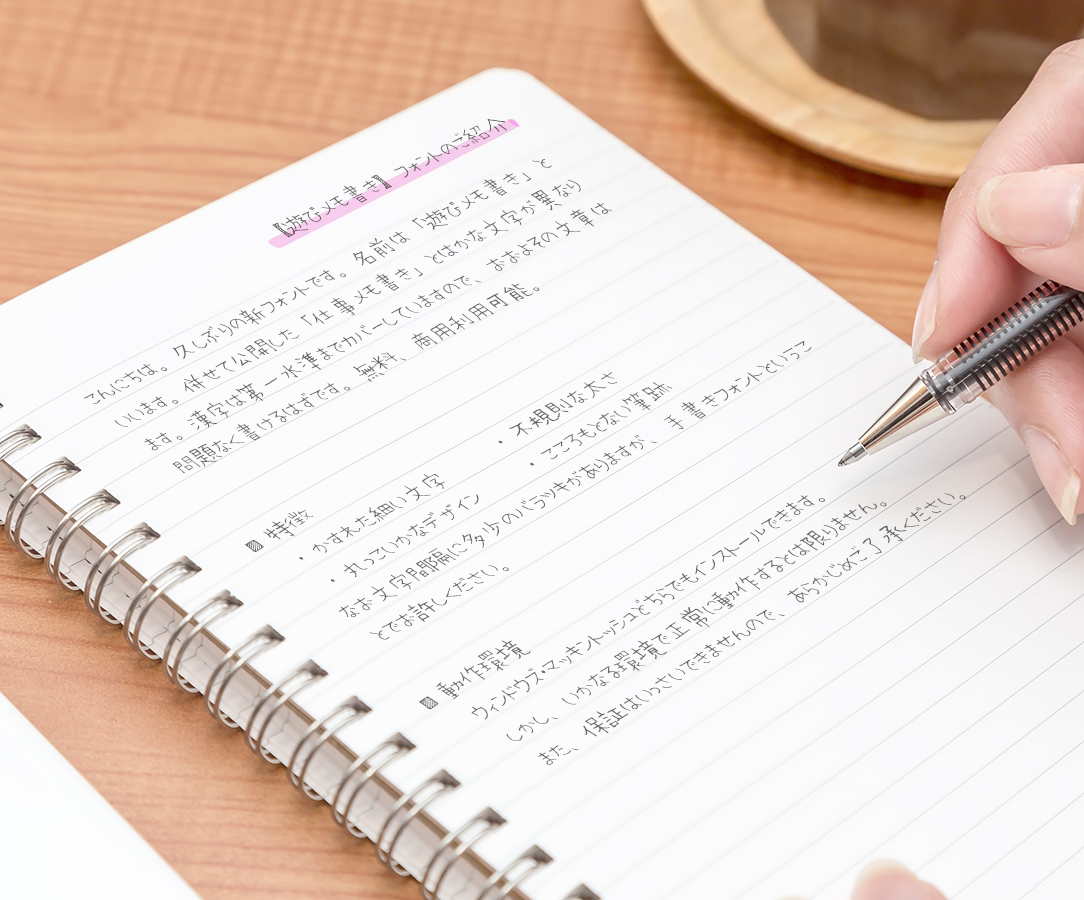 【遊びメモ書き】フォントのご紹介
こんにちは。久しぶりの新フォントです。名前は「遊びメモ書き」と
いいます。併せて公開した「仕事メモ書き」とはかな文字が異なり
ます。漢字は第一水準までカバーしていますので、おおよその文章は
問題なく書けるはずです。無料、商用利用可能。
■特徴
・かすれた細い文字
・不規則な太さ
・丸っこいかなデザイン
・こころもとない筆跡
なお文字間隔に多少のバラツキがありますが、手書きフォントというこ
とでお許しください。
■動作環境
ウィンドウズ・マッキントッシュどちらでもインストールできます。
しかし、いかなる環境で正常に動作するとは限りません。
また、保証はいっさいできませんので、あらかじめご了承ください。